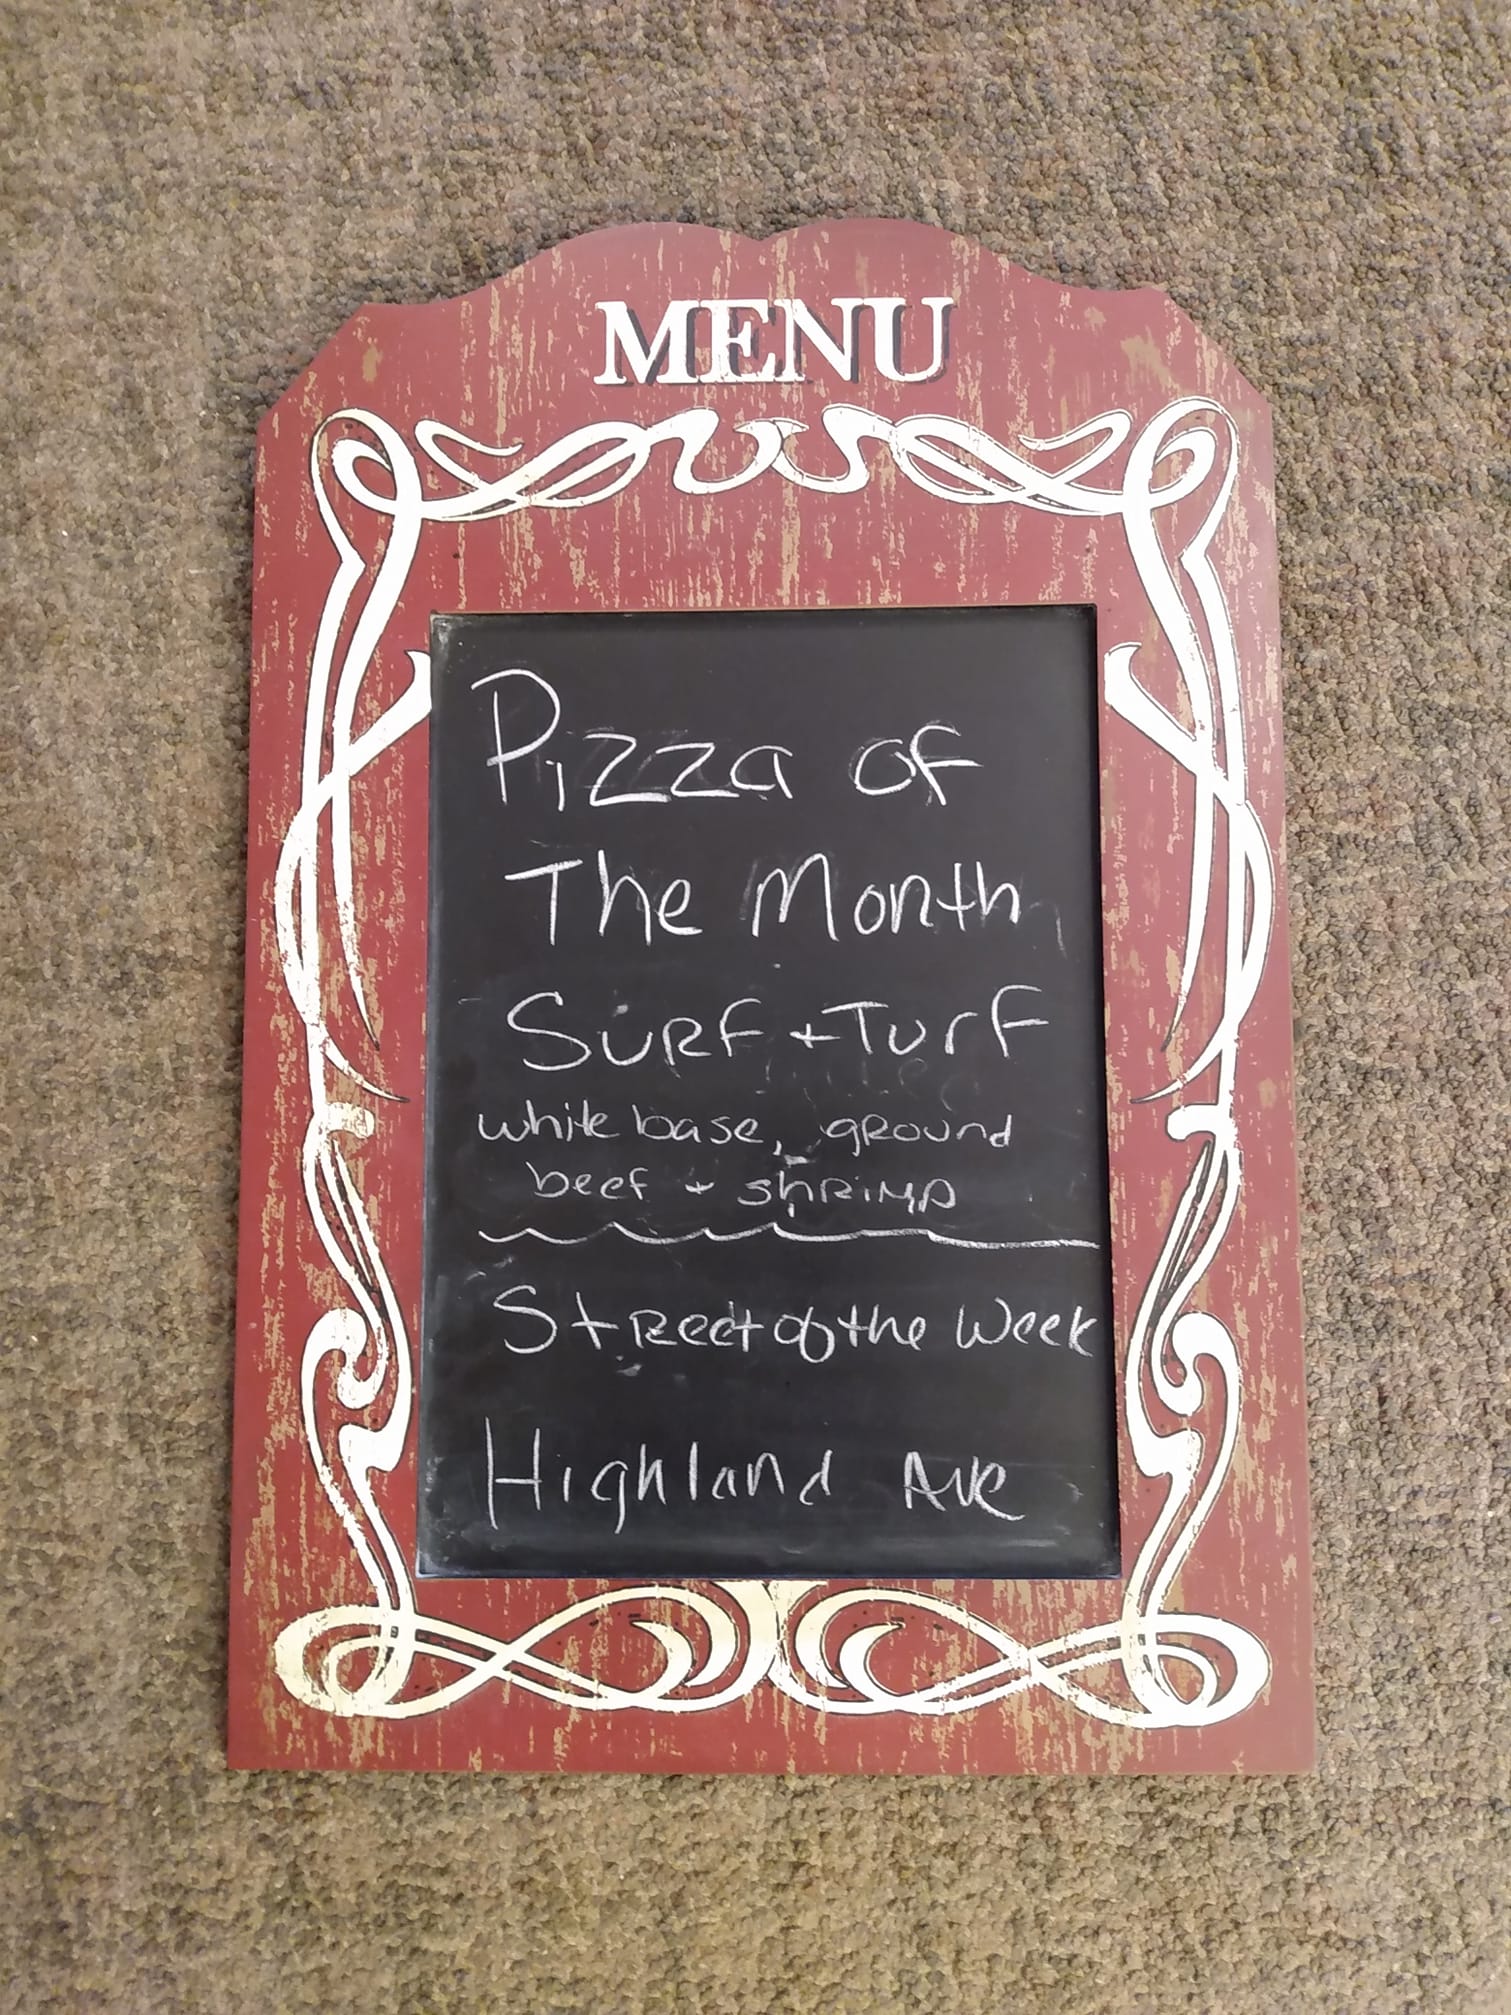 MENU
Pizza of
The Month
Surf + Turf
white base, ground
beef + shrimp
Street of the Week
Highland Ave